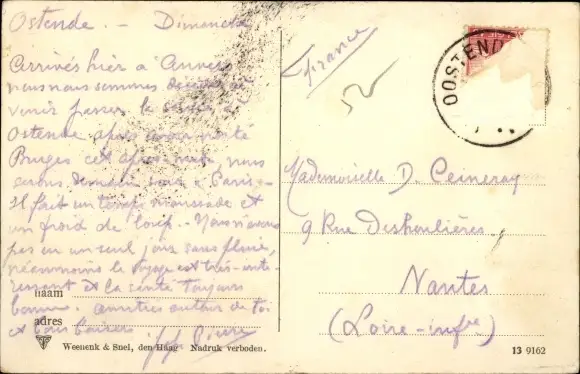 Ostende. - Dimanche
Arrivés hier à Anvers
nous nous sommes décidés à
venir passer la soirée à
Ostende après avoir visité
Bruges cet après-midi, nous
serons demain soir à Paris -
Il fait un temps maussade et
un froid de loup. - Nous n'avons
pas eu un seul jour sans pluie,
néanmoins le voyage est très-inté-
ressant et la santé toujours
bonne. Amitiés autour de toi
et bons baisers
naam
adres
Weenenk & Snel, den Haag Nadruk verboden.
France
52
OOSTEND
Mademoiselle D. Ceineray
9 Rue Deshoulières
Nantes
(Loire-infre)
13 9162